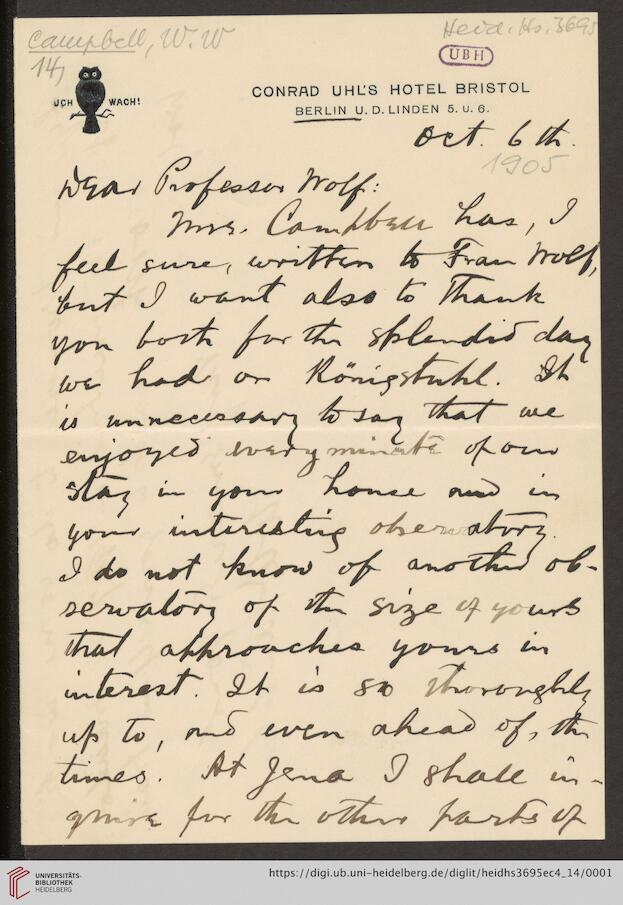 Campbell, W. W
Heid. Hs. 3695
UBH
14,
UCH WACH!
CONRAD UHL'S HOTEL BRISTOL
BERLIN U. D. LINDEN 5. U. 6.
Oct. 6th.
1905
Dear Professor Wolf:
Mrs. Campbell has, I
feel sure, written to Frau Wolf,
but I want also to thank
you both for the splendid day
we had on Königstuhl. It
is unnecessary to say that we
enjoyed every minute of our
stay in your house and in
your interesting observatory.
I do not know of another ob-
servatory of the size of yours
that approaches yours in
interest. It is so thoroughly
up to, and even ahead of, the
times. At Jena I shall in-
quire for the other parts of
UNIVERSITÄTS-
BIBLIOTHEK
HEIDELBERG
https://digi.ub.uni-heidelberg.de/diglit/heidhs3695ec4_14/0001